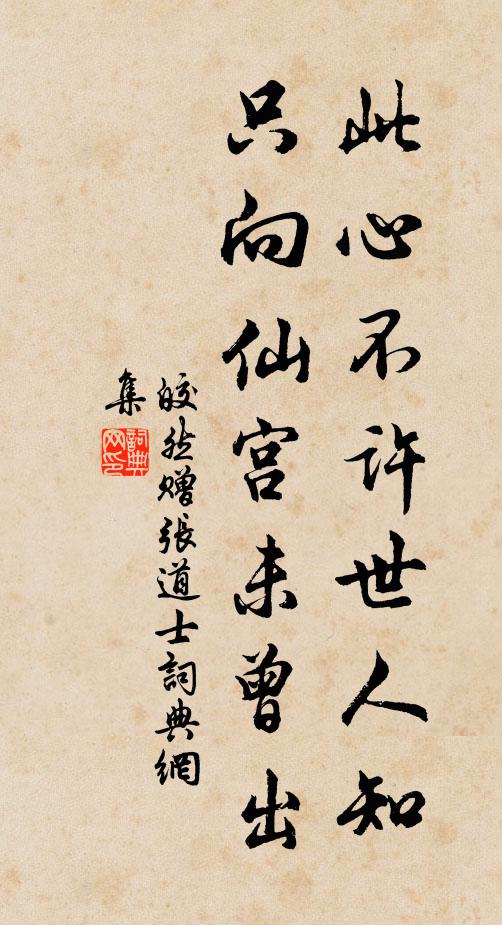 此心不許世人知
只向仙宫未曾出
皎然赠張道士詞典網
集
詞典
网印